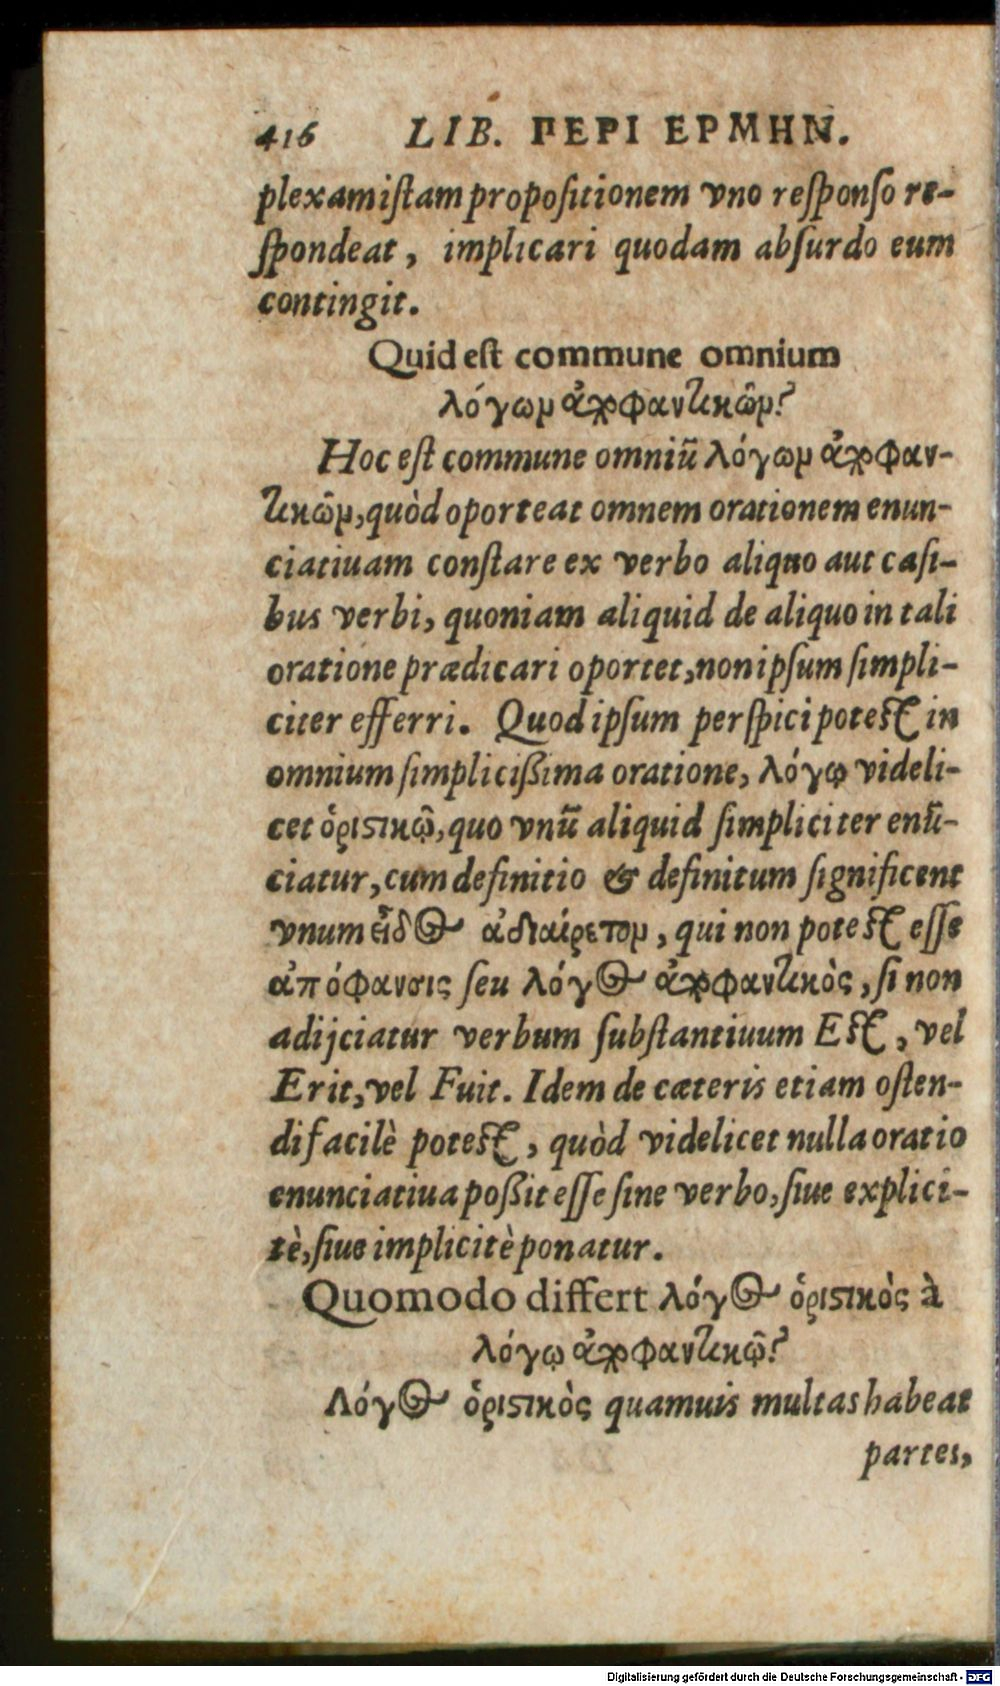 416 LIB. ΠΕΡΙ ΕΡΜΗΝ.
plexam istam propositionem vno responso re-
spondeat, implicari quodam absurdo eum
contingit.
Quid est commune omnium
λόγωμ ἀποφαντικῶμ?
Hoc est commune omniū λόγωμ ἀποφαν-
τικῶμ, quòd oporteat omnem orationem enun-
ciatiuam constare ex verbo aliquo aut casi-
bus verbi, quoniam aliquid de aliquo in tali
oratione prædicari oportet, non ipsum simpli-
citer efferri. Quod ipsum perspici potest in
omnium simplicißima oratione, λόγῳ videli-
cet ὁριστικῷ, quo vnū aliquid simpliciter enū-
ciatur, cum definitio & definitum significent
vnum εἶδος ἀδιαίρετομ, qui non potest esse
ἀπόφανσις seu λόγος ἀποφαντικὸς, si non
adijciatur verbum substantiuum Est, vel
Erit, vel Fuit. Idem de cæteris etiam osten-
di facilè potest, quòd videlicet nulla oratio
enunciatiua poßit esse sine verbo, siue explici-
tè, siue implicitè ponatur.
Quomodo differt λόγος ὁριστικὸς à
λόγῳ ἀποφαντικῷ?
Λόγος ὁριστικὸς quamuis multas habeat
partes,
Digitalisierung gefördert durch die Deutsche Forschungsgemeinschaft - DFG